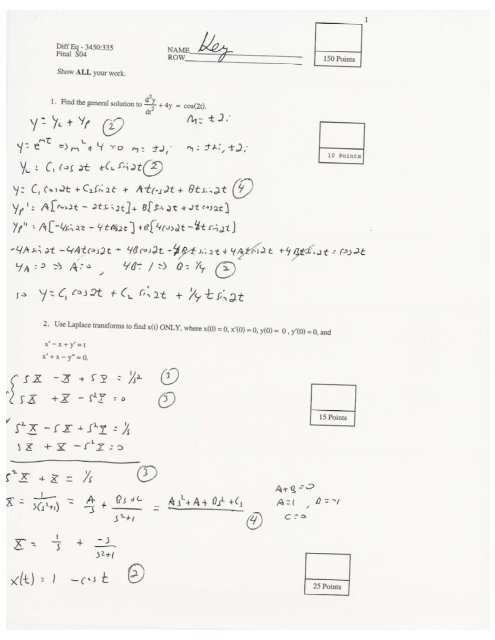 1
Diff Eq - 3450:335
Final S04
NAME Key
ROW
150 Points
Show ALL your work.
1. Find the general solution to d²y/dt² + 4y = cos(2t).
y = y_c + y_p (2)
m = ±2i
10 Points
y = e^{mt} => m² + 4 = 0 m = ±2i, m = ±2i, ±2i
y_c = C₁ cos 2t + C₂ sin 2t (2)
y = C₁ cos 2t + C₂ sin 2t + At cos 2t + Bt sin 2t (4)
y_p' = A[cos 2t - 2t sin 2t] + B[sin 2t + 2t cos 2t]
y_p'' = A[-4 sin 2t - 4t cos 2t] + B[4 cos 2t - 4t sin 2t]
-4A sin 2t - 4At cos 2t + 4B cos 2t - 4Bt sin 2t + 4At cos 2t + 4Bt sin 2t = cos 2t
4A = 0 => A = 0, 4B = 1 => B = 1/4 (2)
so y = C₁ cos 2t + C₂ sin 2t + 1/4 t sin 2t
2. Use Laplace transforms to find x(t) ONLY, where x(0) = 0, x'(0) = 0, y(0) = 0, y'(0) = 0, and
x' - x + y' = t
x' + x - y'' = 0.
{ sX - X + sY = 1/s² (3)
sX + X - s²Y = 0 (3)
15 Points
s²X - sX + s²Y = 1/s
sX + X - s²Y = 0
s²X + X = 1/s (3)
X = 1/s(s²+1) = A/s + (Bs+C)/(s²+1) = As² + A + Bs² + Cs (4)
A+B=0
A=1, B=-1
C=0
X = 1/s + -s/(s²+1)
x(t) = 1 - cos t (2)
25 Points